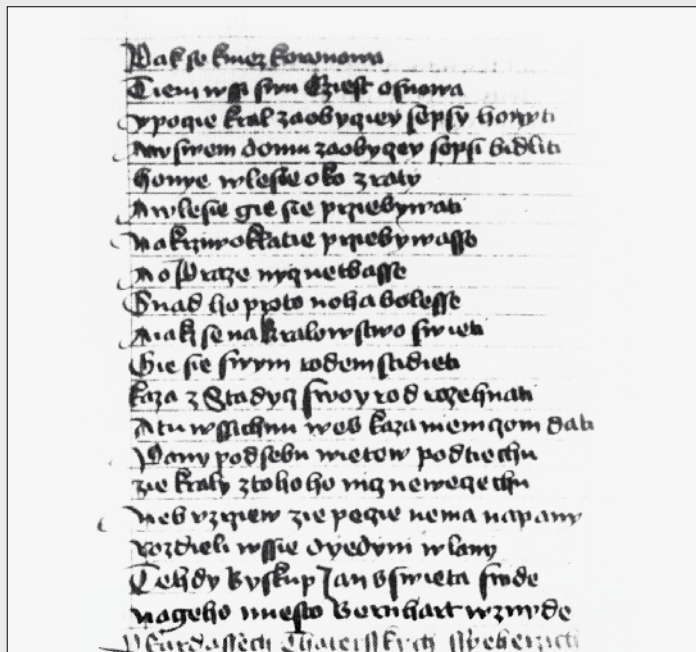 Pak se kniez korunowa
Tiem wssi swu Cziest osnowa
ypogie kral zaobyczey sepsy honyti
Aw swem domu zaobyczey sepsi bidliti
honye wlesie oko zraty
Awlesie gie sie przebywati
Nakrziwoklatie przebywasse
Ao Praze nycz netbasse
Snad ho proto noha bolesse
A iakz se na kralowstwo swieti
Gie sie swym rodem stidieti
kaza z Stadycz swoy rod rozehnati
Atu wssichnu wes kaza niemczom dati
Pany podsebu mietow podtiechu
zie kraly ztoho ho nicz newecechu
neb vzrziew zie peczie nema napany
rozdieli wssie dyedyni wlany
Tehdy Byskup Jan bswieta snide
nageho miesto Bernhart wznyde